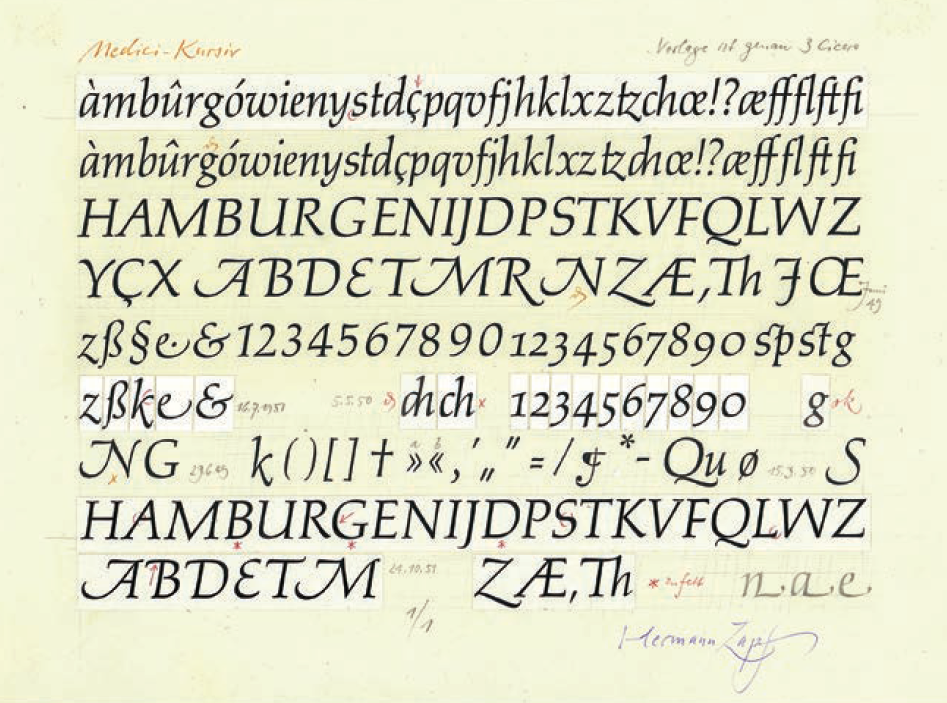 Medici-Kursiv Vorlage ist genau 3 Cicero
àmbûrgówienystdçpqvfjhklxztzchœ!?æffflftfi
àmbûrgówienystdçpqvfjhklxztzchœ!?æffflftfi
HAMBURGENIJDPSTKVFQLWZ
YÇX ABDETMRNZÆ,Th JŒ Juni 49
zß§e.& 1234567890 1234567890 spstg
zßke& 16.7.1951 5.5.50 chch x 1234567890 g ok
NG k()[]† a b »«,'„" =/ *- Qu ø 15.3.50 S
HAMBURGENIJDPSTKVFQLWZ
ABDETM 24.10.51 ZÆ,Th * zu fett n a e
1/1
Hermann Zapf